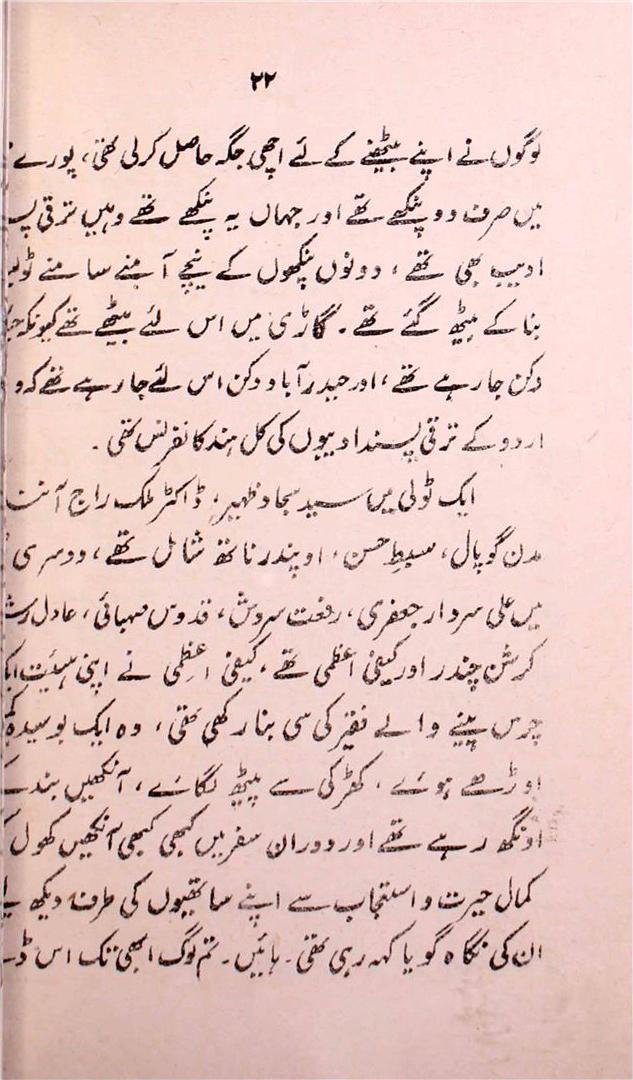 ۲۲
لوگوں نے اپنے بیٹھنے کے لئے اچھی جگہ حاصل کرلی تھی، پورے
میں صرف دو پنکھے تھے اور جہاں یہ پنکھے تھے وہیں ترقی پس
ادیب بھی تھے، دونوں پنکھوں کے نیچے آمنے سامنے ٹولیا
بنا کے بیٹھ گئے تھے۔ گاڑی میں اس لئے بیٹھے تھے کیونکہ حید
دکن جا رہے تھے، اور حیدرآباد دکن اس لئے جا رہے تھے کہ و
اردو کے ترقی پسند ادیبوں کی کل ہند کانفرنس تھی۔
ایک ٹولی میں سید سجاد ظہیر، ڈاکٹر ملک راج آنند
مدن گوپال، سبطِ حسن، اوپندر ناتھ شامل تھے، دوسری
میں علی سردار جعفری، رفعت سروش، قدوس صہبائی، عادل رش
کرشن چندر اور کیفی اعظمی تھے، کیفی اعظمی نے اپنی ہیئت ایک
چرس پینے والے فقیر کی سی بنا رکھی تھی، وہ ایک بوسیدہ ک
اوڑھے ہوئے، کھڑکی سے پیٹھ لگائے، آنکھیں بند ک
اونگھ رہے تھے اور دوران سفر میں کبھی کبھی آنکھیں کھول ک
کمال حیرت و استعجاب سے اپنے ساتھیوں کی طرف دیکھ لی
ان کی نگاہ گویا کہہ رہی تھی۔ ہائیں۔ تم لوگ ابھی تک اس ڈ